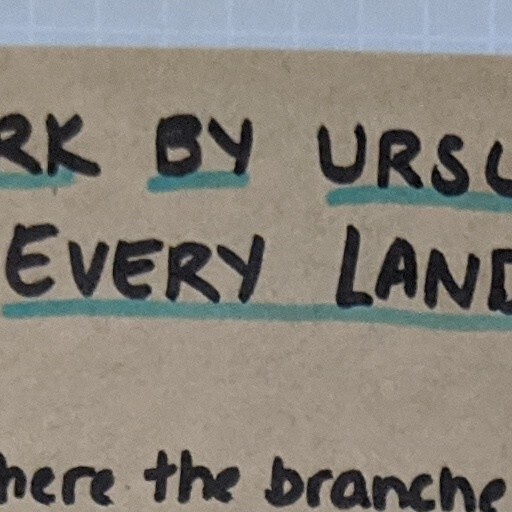 RK BY URSU
EVERY LAND
here the branche